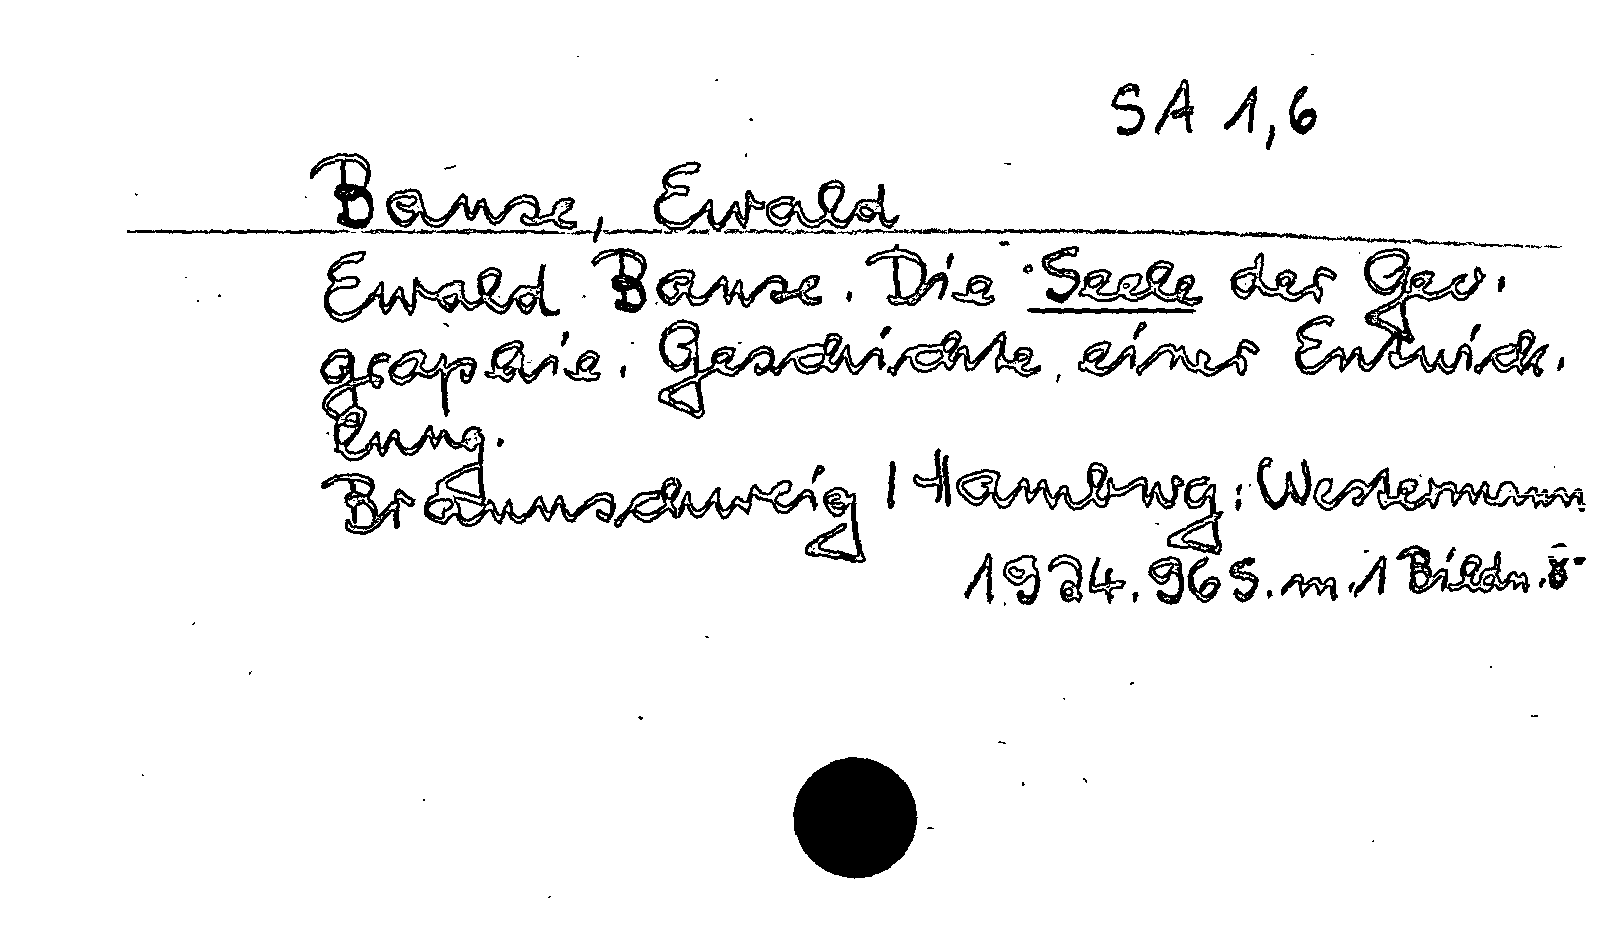 SA 1,6
Banse, Ewald
Ewald Banse. Die Seele der Geo-
graphie. Geschichte einer Entwick-
lung.
Braunschweig / Hamburg: Westermann
1924. 96 S. m. 1 Bildn. 8°